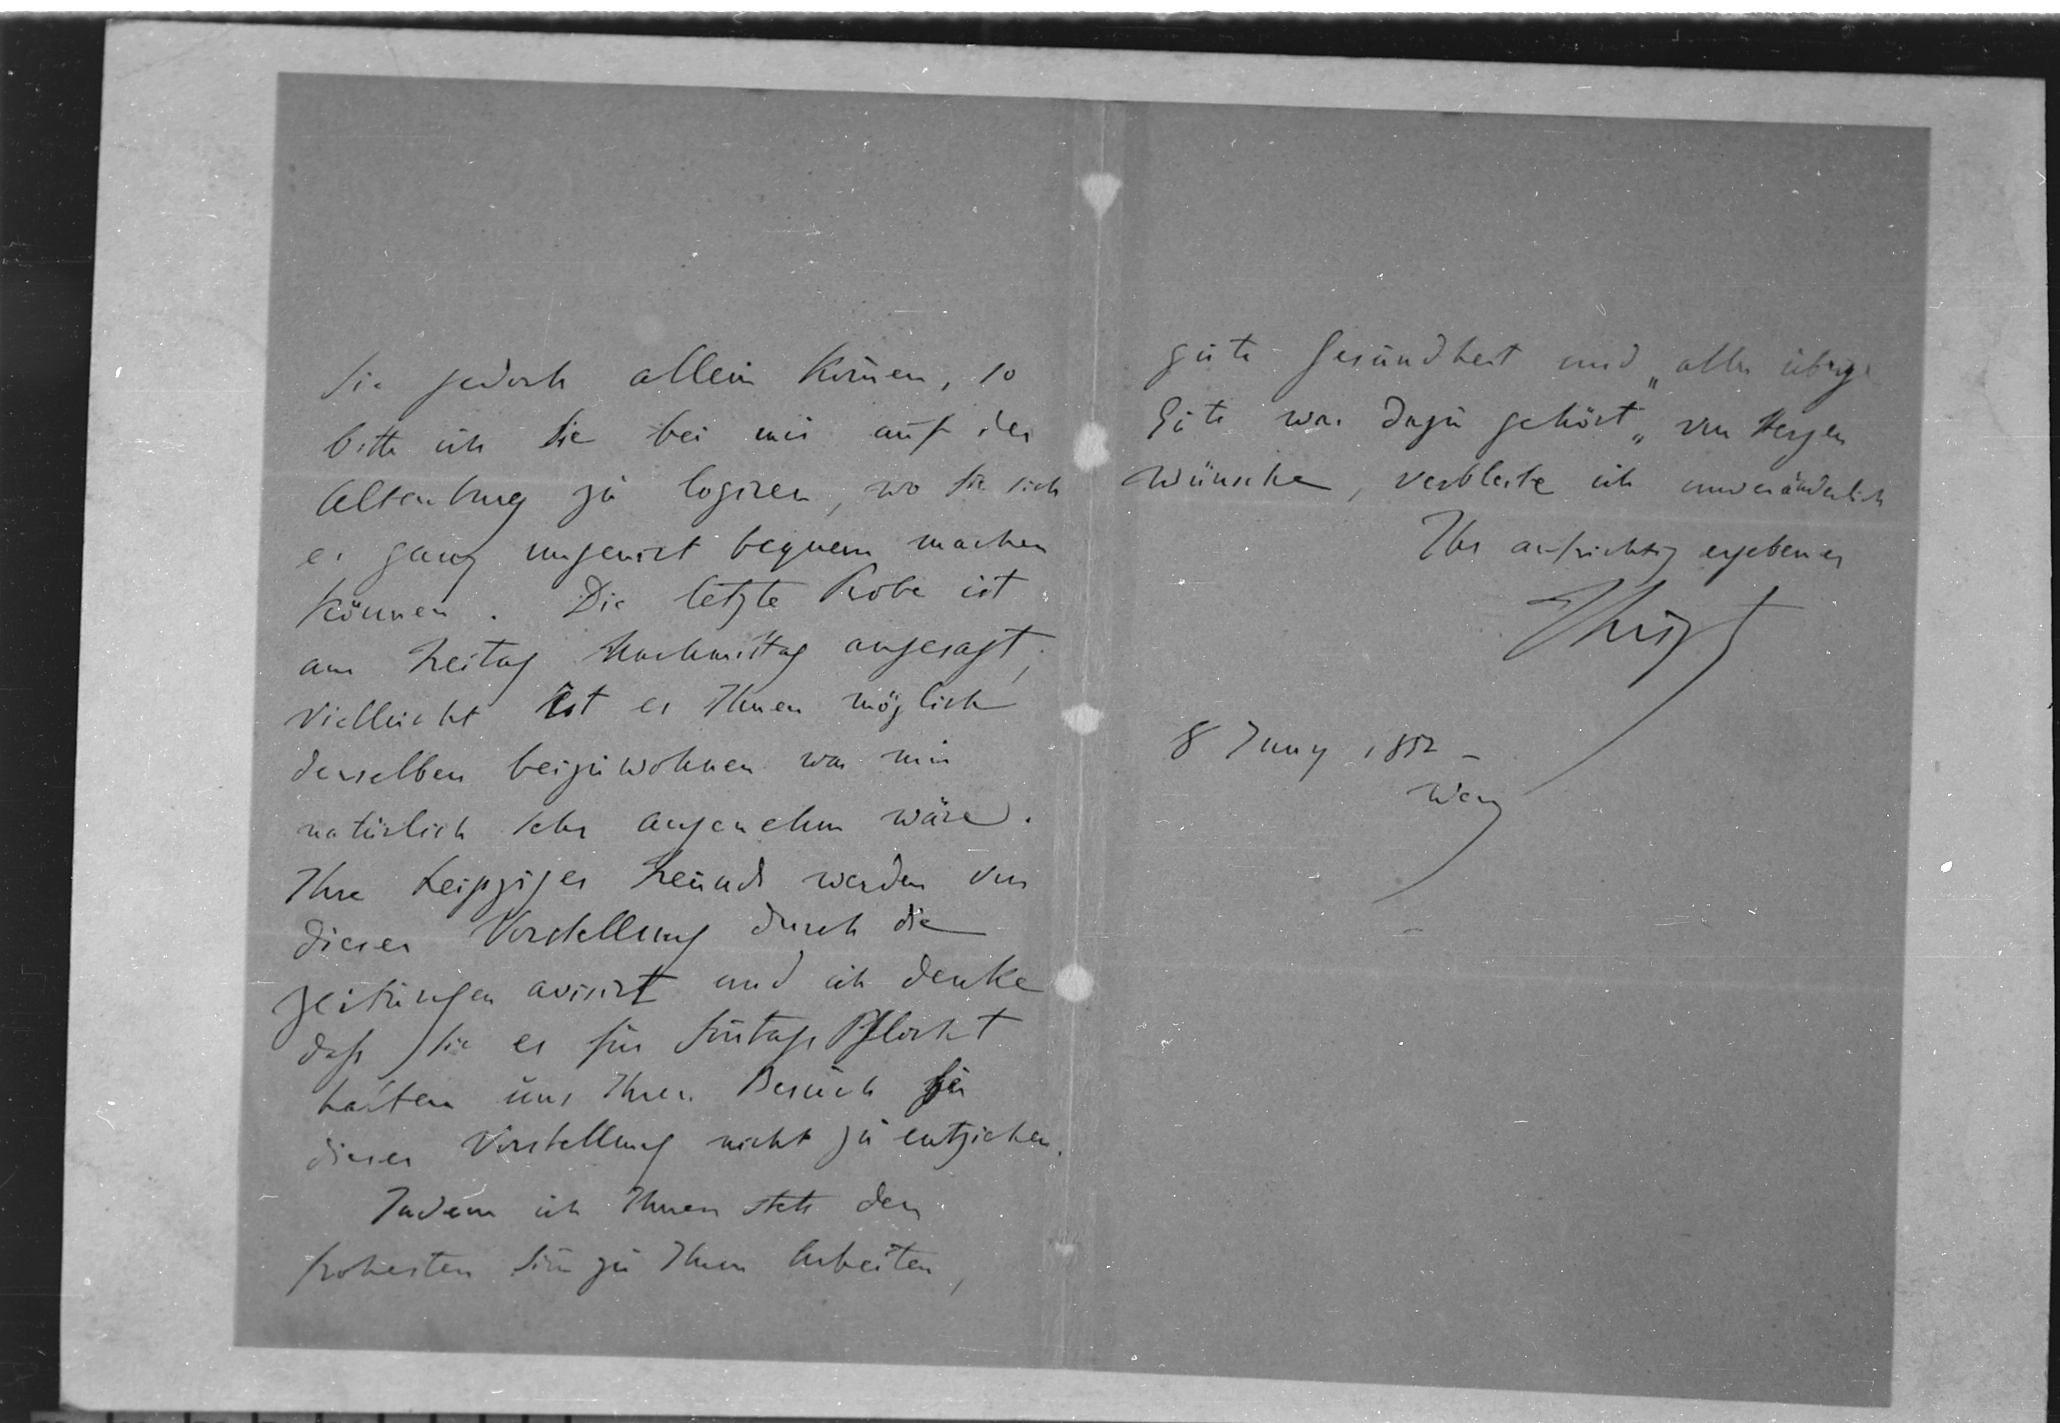 Sie jedoch allein kom̄en, so
bitte ich Sie bei mir auf der
Altenburg zu logiren, wo Sie sich
es ganz ungenirt bequem machen
können. Die letzte Probe ist
am Freitag Nachmittag angesagt;
vielleicht ist es Ihnen möglich
derselben beizuwohnen was mir
natürlich sehr angenehm wäre.
Ihre Leipziger Freunde werden von
dieser Vorstellung durch die
Zeitungen avisirt und ich denke
dass Sie es für Pflicht
halten uns Ihren Besuch zu
dieser Vorstellung nicht zu entziehen.
Indem ich Ihnen stets den
frohesten Sin̄ zu Ihren Arbeiten,
gute Gesundheit und „alles übrige
Gute was dazu gehört„ von Herzen
wünsche, verbleibe ich unveränderlich
Ihr aufrichtig ergebener
FLiszt
8 Juny 1852 –
Weÿ